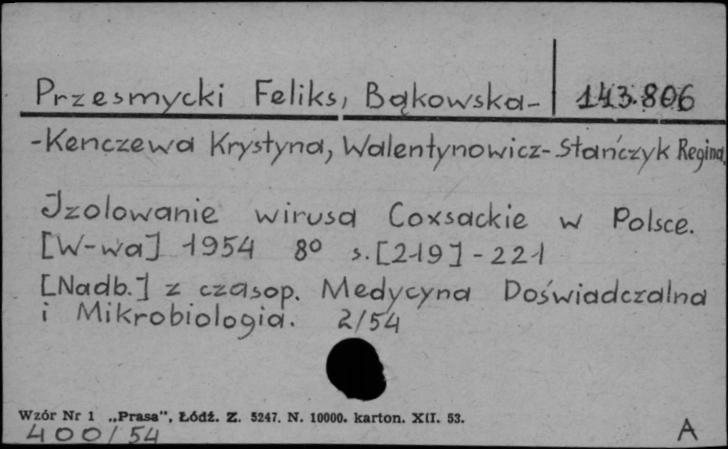 Przesmycki Feliks, Bąkowska- 143.806
-Kenczewa Krystyna, Walentynowicz-Stańczyk Regina.
Izolowanie wirusa Coxsackie w Polsce.
[W-wa] 1954 8° s.[219]-221
[Nadb.] z czasop. Medycyna Doświadczalna
i Mikrobiologia. 2/54
Wzór Nr 1 „Prasa", Łódź. Z. 5247. N. 10000. karton. XII. 53.
400/54 A